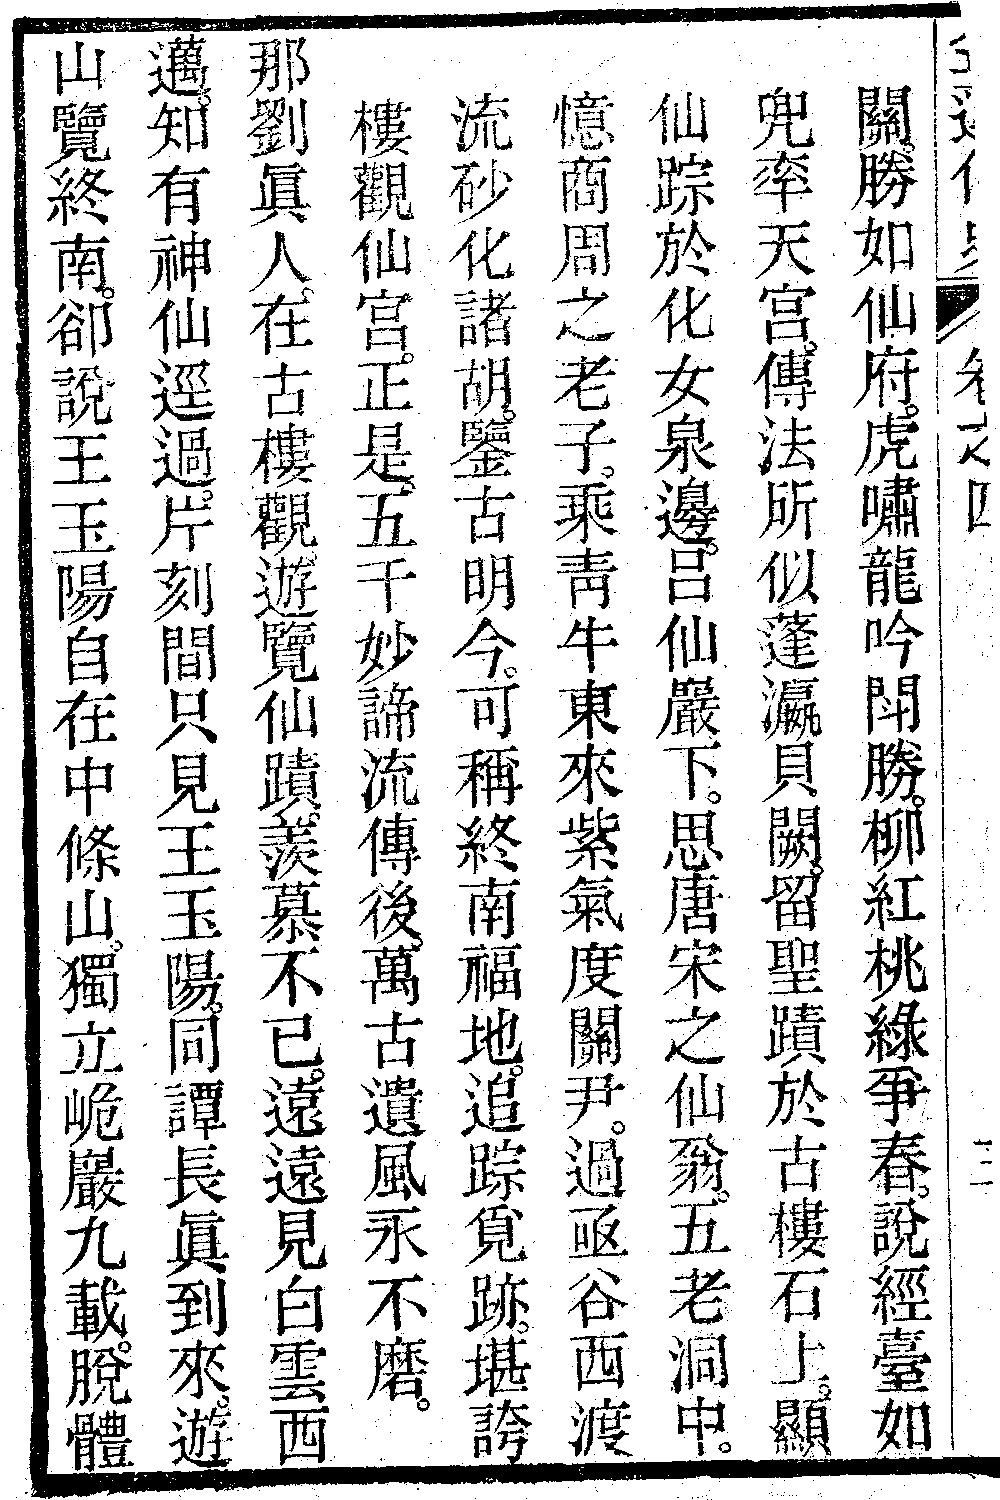 卷之四
關。勝如仙府。虎嘯龍吟閗勝。柳紅桃綠爭春。說經臺如
兜率天宮。傳法所似蓬瀛貝闕。留聖蹟於古樓石上。顯
仙踪於化女泉邊。呂仙巖下。思唐宋之仙翁。五老洞中。
憶商周之老子。乘靑牛東來紫氣度關尹。過函谷西渡
流砂化諸胡。鑒古明今。可稱終南福地。追踪覓跡。堪誇
樓觀仙宮。正是。五千妙諦流傳後。萬古遺風永不磨。
那劉眞人。在古樓觀。遊覽仙蹟。羨慕不已。遠遠見白雲西
邁。知有神仙逕過。片刻間只見王玉陽。同譚長眞到來。遊
山覽終南。卻說王玉陽自在中條山。獨立峗巖九載。脫體